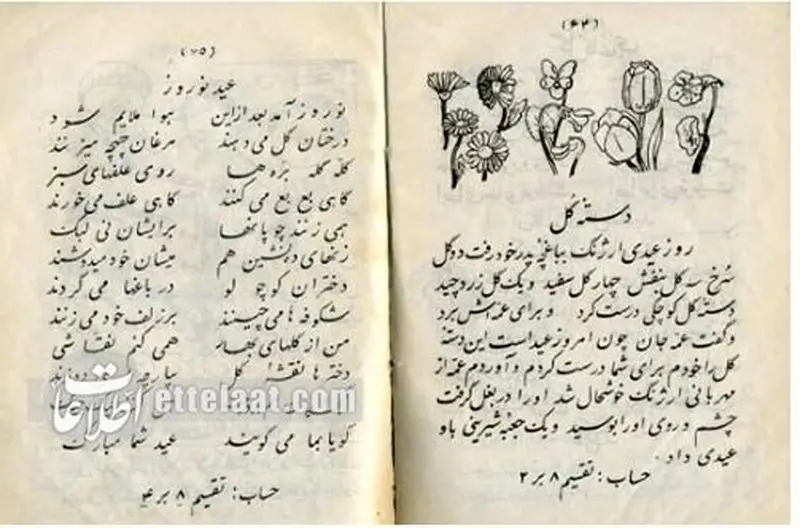 (۴۴)
دسته گل
روز عیدی ارژنگ بباغچه پدرخود رفت دو گل
سرخ سه گل بنفش چهار گل سفید و یک گل زرد چید
دسته گل کوچکی درست کرد و برای عمه اش برد
و گفت عمه جان چون امروز عید است این دسته
گل را خودم برای شما درست کردم و آوردم عمه از
مهربانی ارژنگ خوشحال شد او را در بغل گرفت
چشم و روی او را بوسید و یک جعبه شیرینی باو
عیدی داد.
حساب: تقسیم ۸ بر ۲
(۴۵)
عید نوروز
نوروز آمد بعد از این هوا ملایم شود
درختان گل می دهند مرغان چهچه میزنند
گله گله بره ها روی علفهای سبز
گاهی بع بع می کنند گاهی علف می خورند
هی زنند چوپانها برایشان نی لبک
زنهای ده نشین هم میشان خود میدوشند
دختران کوچولو در باغها می گردند
شکوفه ها می چینند بر زلف خود می زنند
من از گلهای بهار همی کنم نقاشی
دخترها نقش گل
اطلاعات
ettelaat.com
گویا بما می گویند عید شما مبارک
حساب: تقسیم ۸ بر ۴